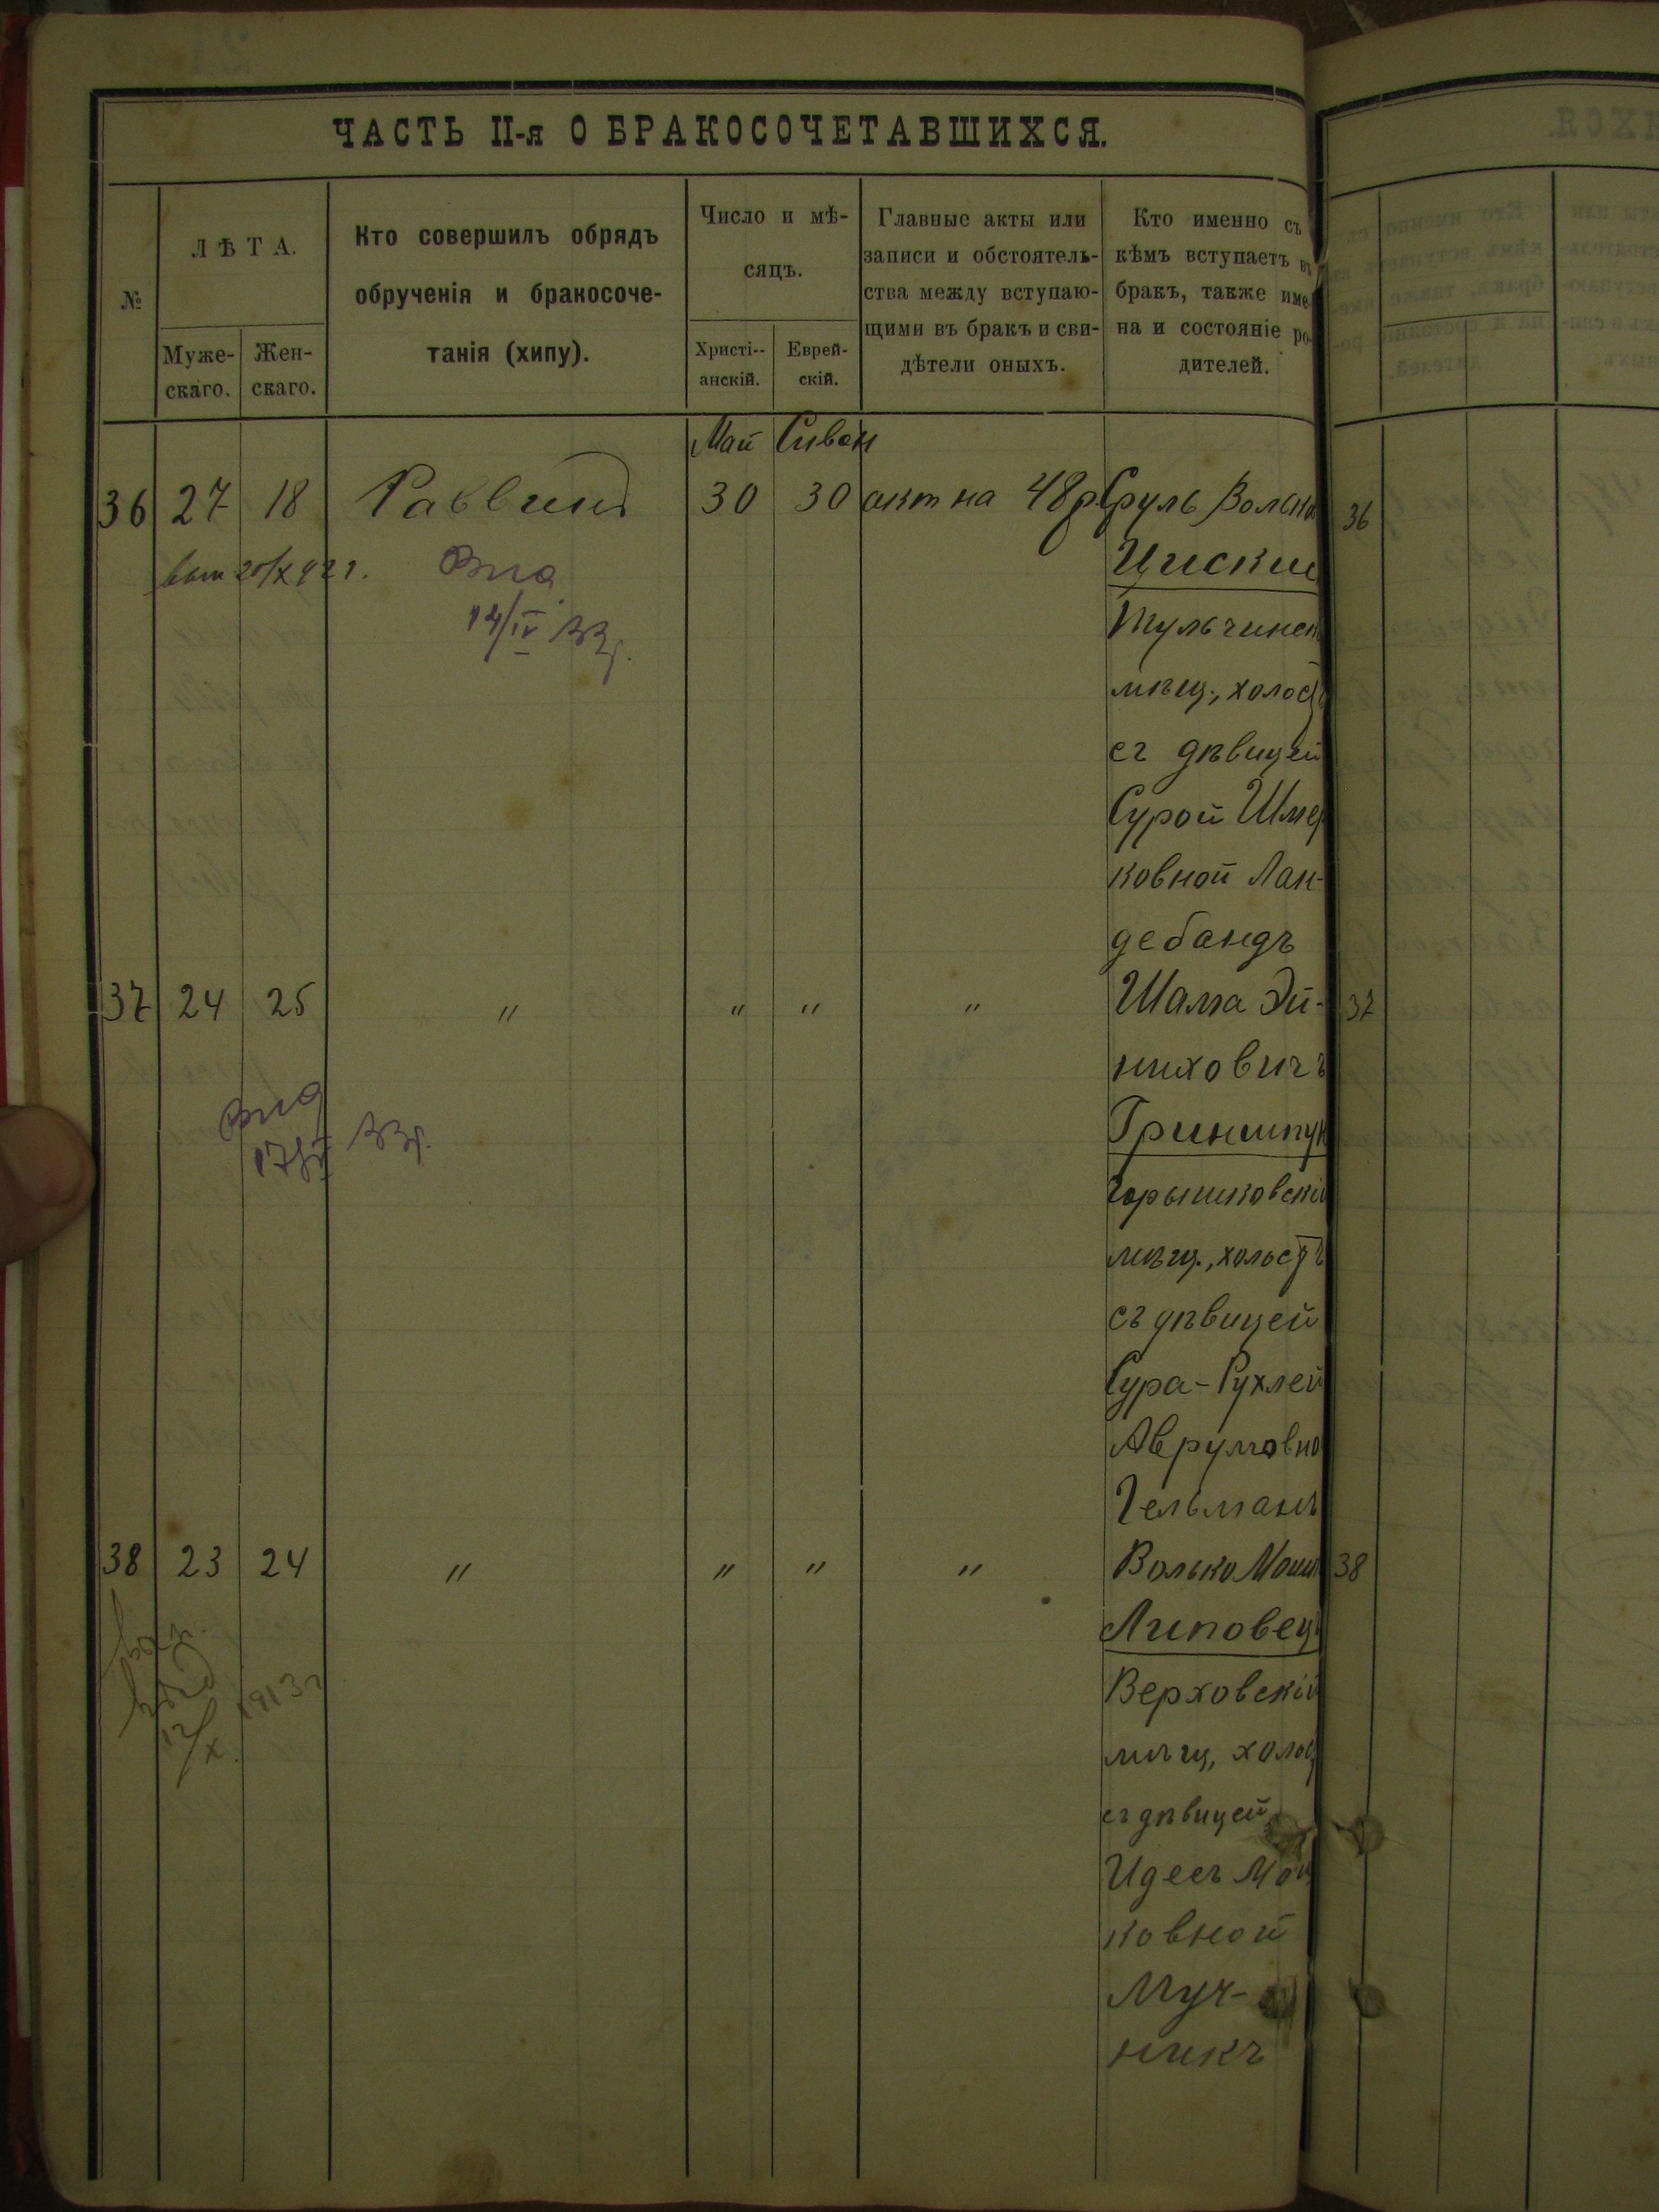 ЧАСТЬ II-я О БРАКОСОЧЕТАВШИХСЯ.
№
ЛѢТА.
Муже-
скаго.
Жен-
скаго.
Кто совершилъ обрядъ
обрученія и бракосоче-
танія (хипу).
Число и мѣ-
сяцъ.
Христі-
анскій.
Еврей-
скій.
Главные акты или
записи и обстоятель-
ства между вступаю-
щими въ бракъ и сви-
дѣтели оныхъ.
Кто именно съ
кѣмъ вступаетъ въ
бракъ, также име-
на и состояніе ро-
дителей.
Май Сиван
36 27 18 Раввинъ 30 30 акт на 48 р Сруль Волько
36
20/X 921.
14/IV 33г.
Тульчинск
мѣщ., холостъ
съ дѣвицей
Сурой Шмер
ковной Лан-
дебандъ
37 24 25 " " " " Шама Эй-
37
ниховичъ
Гриншпун
Горышковскій
мѣщ., холостъ
съ дѣвицей
Сура-Рухлей
Аврумовно
Гельманъ
33г.
38 23 24 " " " " Волько Мошк
38
Липовецъ
Верховскій
мѣщ, холос
съ дѣвицей
Идесъ Мош
ковной
Муч-
никъ
12/X 1913г